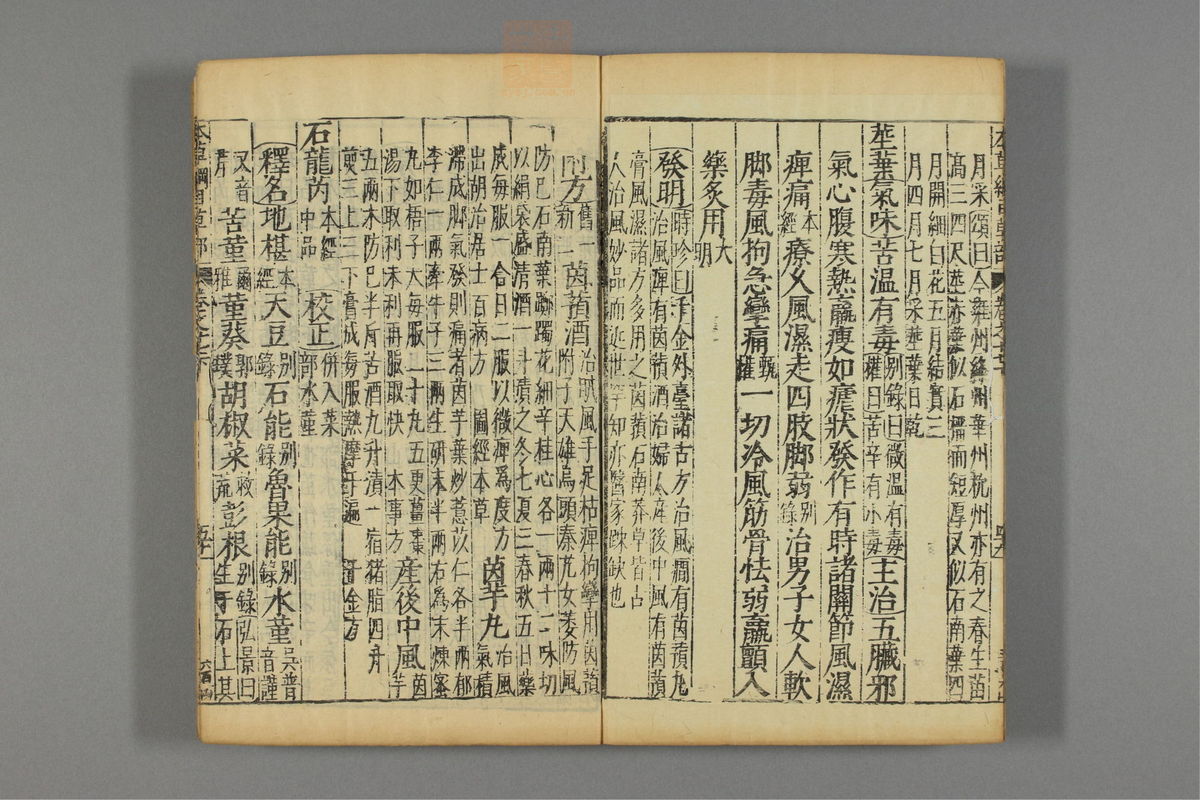 月采頌曰今雍州絳州華州杭州亦有之春生苗
高三四尺莖赤葉似石榴而短厚又似石南葉四
月開細白花五月結實三
月四月七月采莖葉日乾
莖葉氣味苦溫有毒別錄曰微溫有毒權曰苦辛有小毒主治五臟邪
氣心腹寒熱羸瘦如瘧狀發作有時諸關節風濕
痺痛本經療久風濕走四肢脚弱別錄治男子女人軟
脚毒風拘急攣痛甄權一切冷風筋骨怯弱羸顫入
藥炙用大明
發明時珍曰千金外臺諸古方治風癇有茵蕷丸
治風痺有茵蕷酒治婦人產後中風有茵蕷
膏風濕諸方多用之茵蕷石南莽草皆古
人治風妙品而近世罕知亦醫家疎缺也
附方舊一新一茵蕷酒治賊風手足枯痺拘攣用茵蕷
附子天雄烏頭秦艽女萎防風
防己石南葉躑躅花細辛桂心各一兩十二味切
以絹袋盛清酒一斗漬之冬七夏三春秋五日藥
成每服一合日二服以微痺爲度方
出胡洽居士百病方 圖經本草 茵芋丸治風氣積
滯成脚氣發則痛者茵芋葉炒薏苡仁各半兩郁
李仁一兩牽牛子三兩生研末半兩右爲末煉蜜
丸如梧子大每服二十丸五更薑棗
湯下取利未利再服取快 本事方 產後中風茵芋
五兩木防已半斤苦酒九升漬一宿猪脂四升
煎三上三下膏成每服熱摩千遍 千金方
石龍芮本經中品 校正併入菜部水堇
釋名地椹本經天豆別錄石能別錄魯果能別錄水堇吳普音謹
又音芹苦堇爾雅堇葵郭璞胡椒菜救荒彭根別錄弘景曰生于石上其